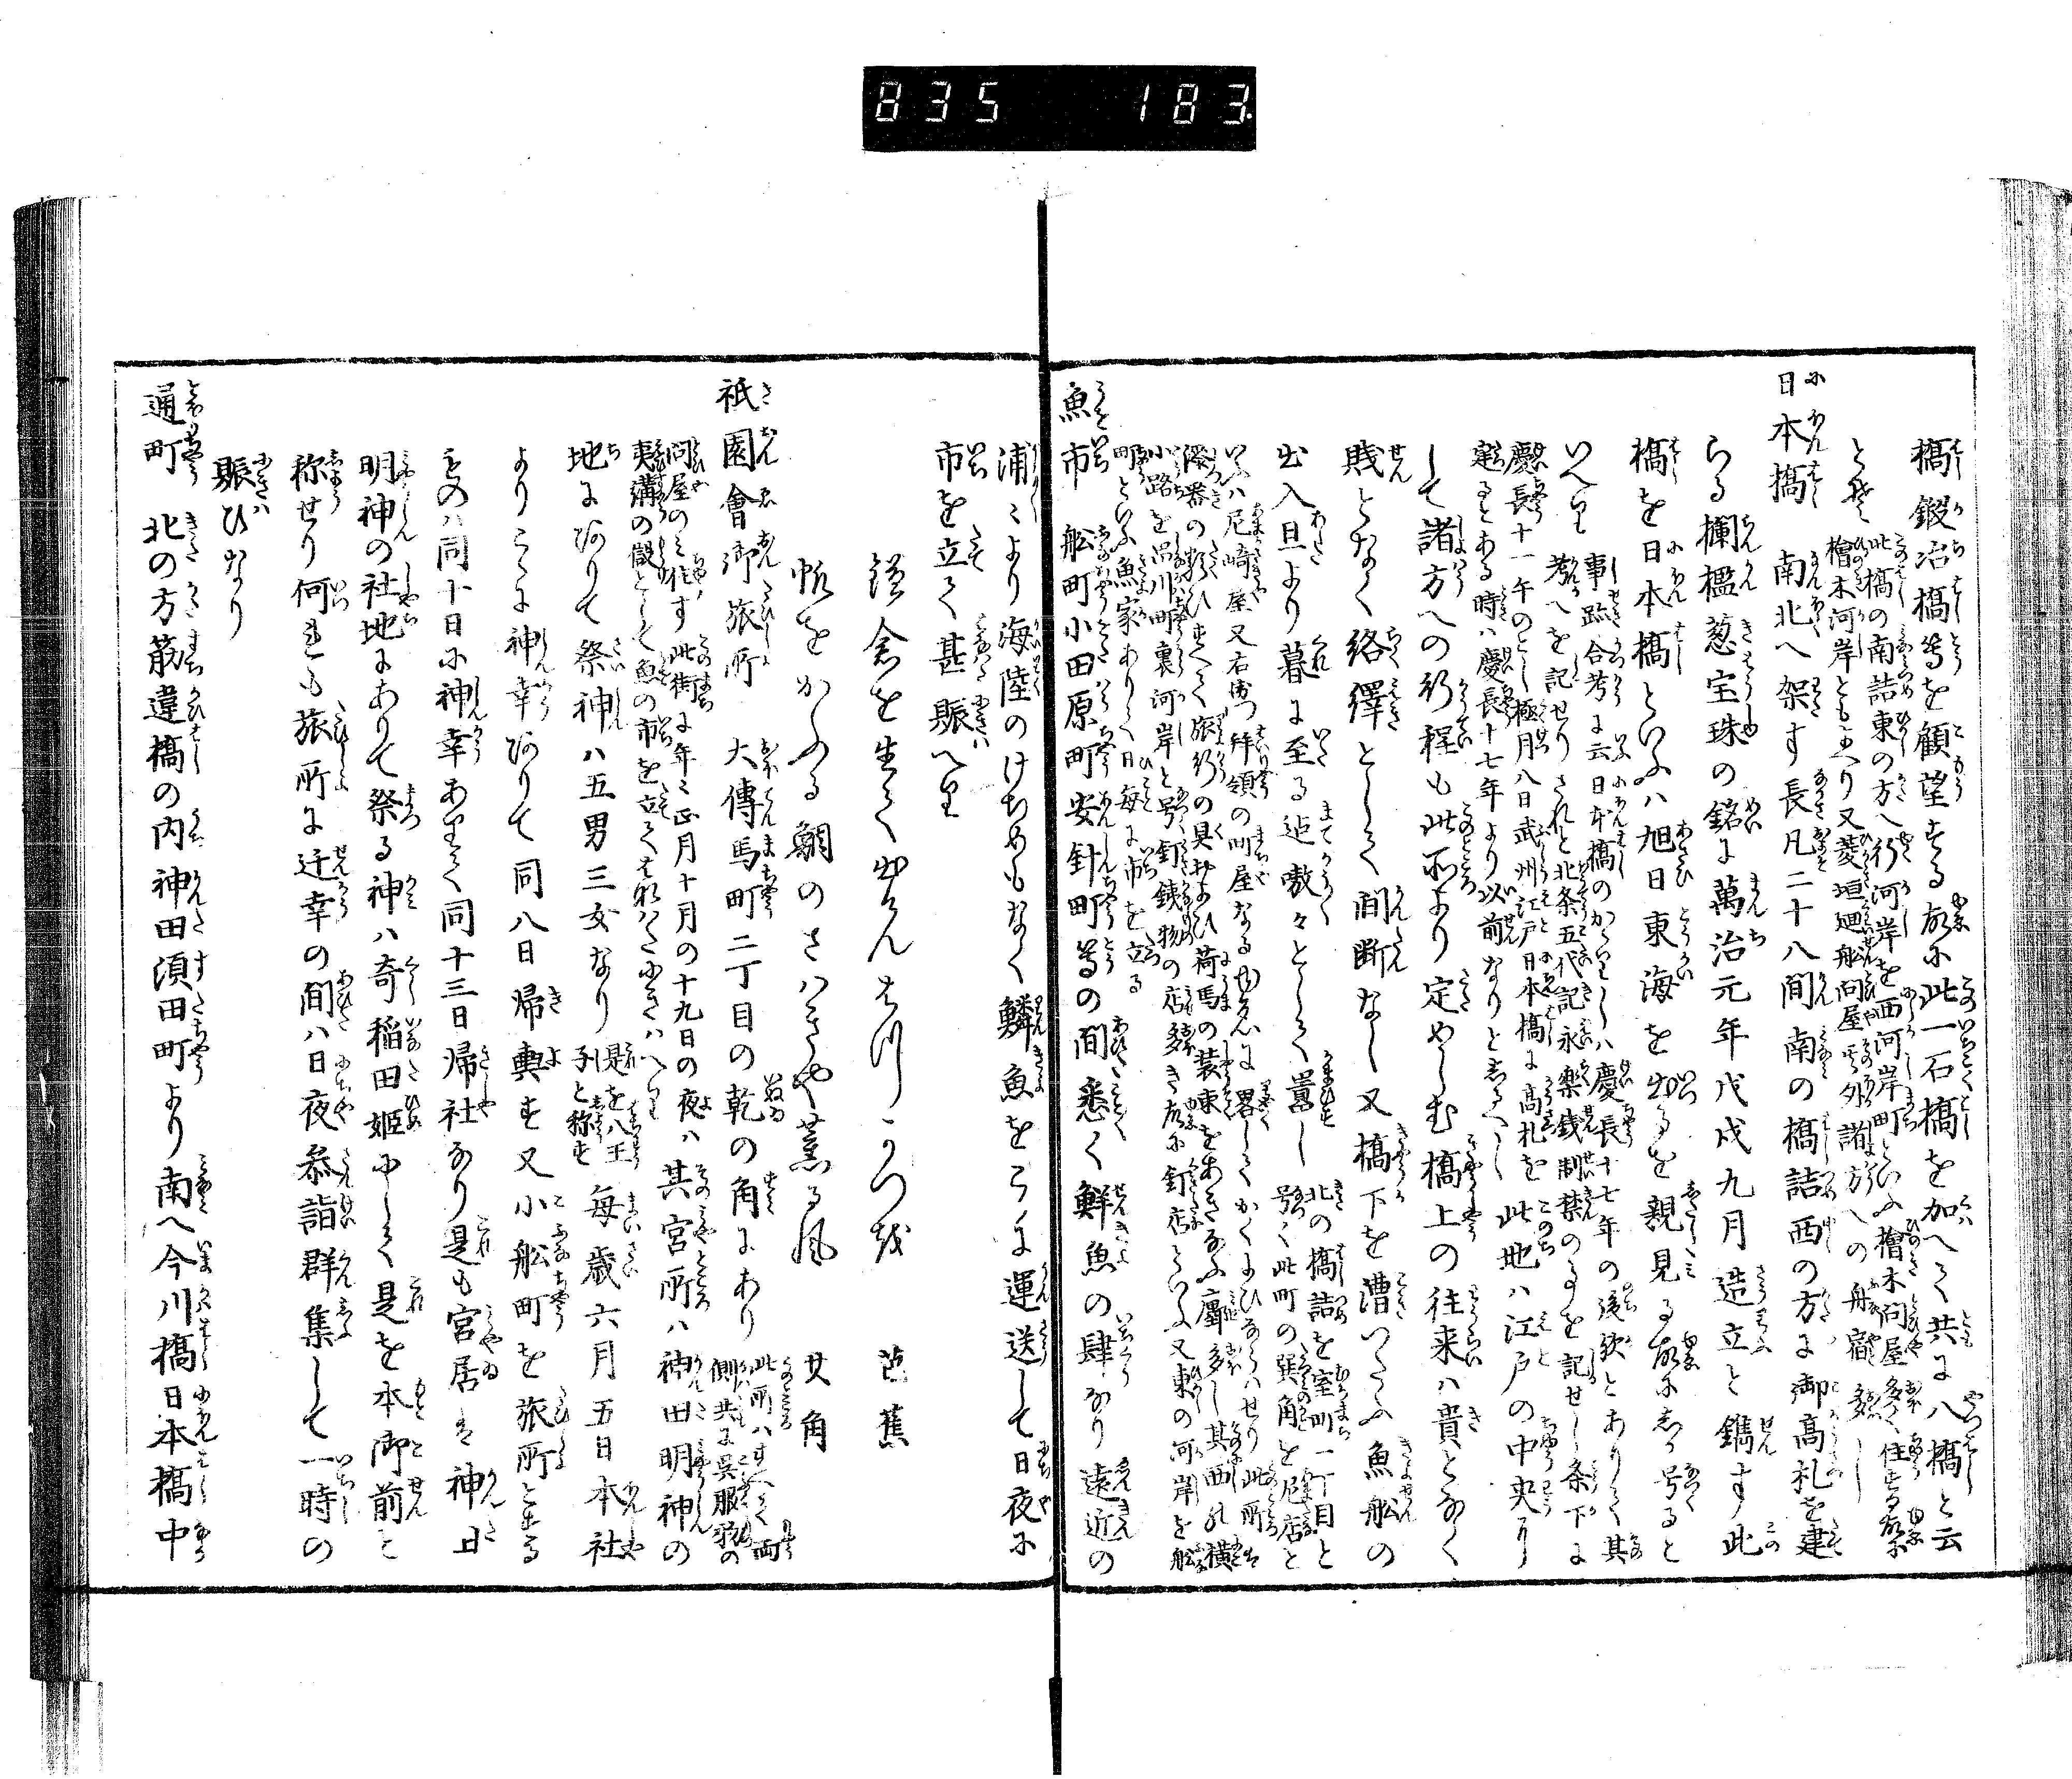 835 183
橋鍛冶橋等を顧望する故に此一石橋を加へて共に八橋と云
とぞ 此橋の南詰東の方へ行河岸を西河岸町といふ檜木問屋多く住する故に
檜木河岸ともいへり又菱垣廻船問屋其外諸方への船宿多し
日本橋 南北へ架す長凡二十八間南の橋詰西の方に御高札を建
らる欄檻葱宝珠の銘に萬治元年戊戌九月造立と鐫す此
橋を日本橋といふハ旭日東海を出るを親見る故にしか号ると
いへり 事跡合考に云日本橋のかゝりしハ慶長十七年の後歟とありて其
考へを記せりされと北条五代記永楽銭制禁の事を記せし条下に
慶長十一午のとし極月八日武州江戸日本橋に高札を
建るとある時ハ慶長十七年より以前なりとしるへし 此地ハ江戸の中央に
して諸方への行程も此所より定めしむ橋上の往来ハ貴となく
賎となく絡繹として間断なし又橋下を漕つたふ魚船の
出入旦より暮に至る迄嗷々として囂し 北の橋詰を室町一丁目と
号く此町の巽角を尼店と
いふハ尼崎屋又右衛門拝領の町屋なるゆゑに畧してかくよひならハせり此所は
漆器の類ひすへて旅行の具およひ荷馬の装束をあきなふ廛多し其西の横
小路を品川町裏河岸と号釘鉄物の店多き故に釘店といふ又東の河岸を船
町といふ魚家ありて日毎に市を立る
魚市 舩町小田原町安針町等の間悉く鮮魚の肆なり遠近の
浦々より海陸のけちめもなく鱗魚をこゝに運送して日夜に
市を立て甚賑へり
鎌倉を生て出けんはつかつを 芭蕉
帆をかふる鯛のさハきや薫る風 其角
祇園會御旅所 大傳馬町二丁目の乾の角にあり 此所ハすへて両
側共に呉服物の
問屋のミ住す此街に年々正月十月の十九日の夜ハ其宮所ハ神田明神の
夷講の儲として魚の市を立てはなハたにきハへり
地にありて祭神ハ五男三女なり 是を八王
子と称す 毎歳六月五日本社
よりこゝに神幸ありて同八日帰輿す又小船町を旅所とする
ものハ同十日に神幸ありて同十三日帰社なり是も宮居は神田
明神の社地にありて祭る神ハ奇稲田姫にして是を本御前と
称せり何れも旅所に迁幸の間ハ日夜参詣群集して一時の
賑ひなり
通町 北の方筋違橋の内神田須田町より南へ今川橋日本橋中